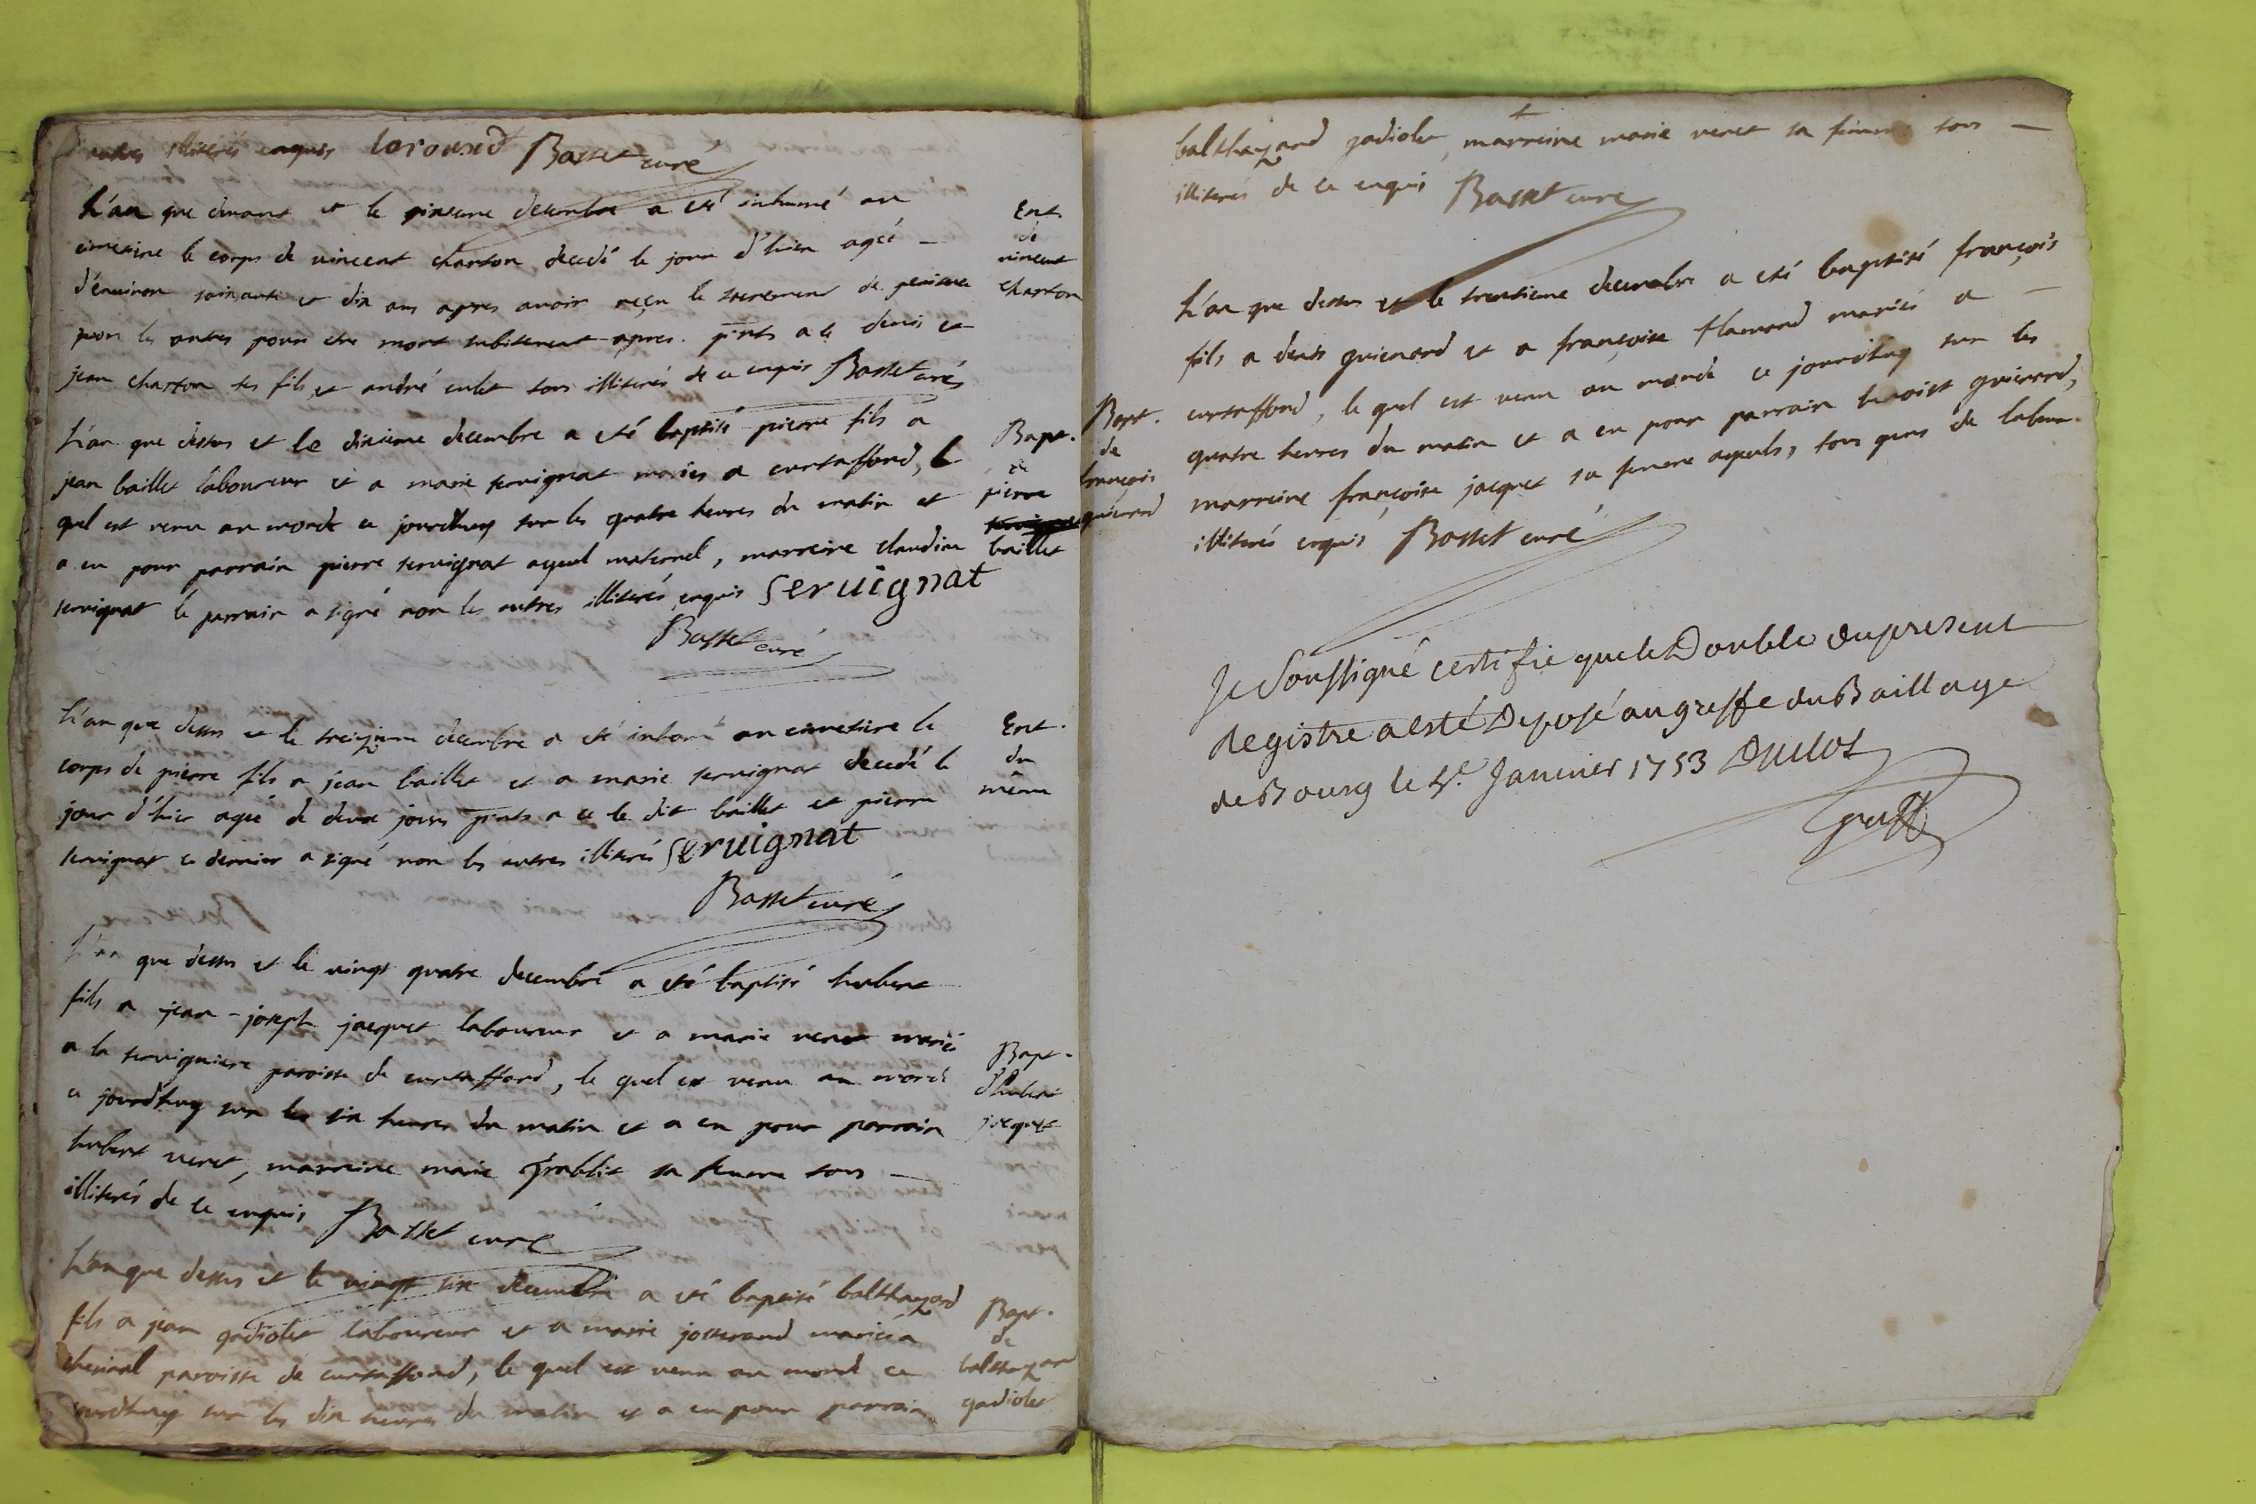 autres illiterés enquis loround Basset curé
L'an que devant et le sixieme decembre a été inhumé au
cimetiere le corps de vincent charton decedé le jour d'hier agé —
d'environ soixante et dix ans apres avoir reçu le sacrement de penitence
non les autres pour etre mort subitement apres. pnts a ce denis et
jean charton ses fils, et andré culet tous illiterés de ce enquis Basset curé
Ent.
de
vincent
charton
L'an que dessus et le dixieme decembre a été baptisé pierre fils a
jean baillet laboureur et a marie servignat mariés a curtaffond, le
quel est venu au monde ce jourdhuy sur les quatre heures du matin et
a eu pour parrain pierre servignat ayeul maternel, marreine claudine
servignat le parrain a signé non les autres illiterés enquis servignat
Basset curé
Bapt.
de
pierre
baillet
L'an que dessus et le treizieme decembre a été inhumé au cimetiere le
corps de pierre fils a jean baillet et a marie servignat decedé le
jour d'hier agé de deux jours pnts a ce le dit baillet et pierre
servignat ce dernier a signé non les autres illiterés servignat
Basset curé
Ent.
du
même
L'an que dessus et le vingt quatre decembre a été baptisé hubert
fils a jean-joseph jacquet laboureur et a marie veret mariés
a la servigniere paroisse de curtaffond, le quel est venu au monde
ce jourdhuy sur les six heures du matin et a eu pour parrain
hubert veret, marreine marie grablit sa femme tous —
illiterés de ce enquis Basset curé
Bapt.
d'hubert
jacquet
L'an que dessus et le vingt six decembre a été baptisé balthazard
fils a jean gadiolet laboureur et a marie josserand mariés a
chevinal paroisse de curtaffond, le quel est venu au monde ce
jourdhuy sur les dix heures du matin et a eu pour parrain
Bapt.
de
balthazard
gadiolet
balthazard gadiolet, marreine marie veret sa femme tous —
illiterés de ce enquis Basset curé
L'an que dessus et le trentieme decembre a été baptisé françois
fils a denis guienard et a françoise flamand mariés a —
curtaffond, le quel est venu au monde ce jourdhuy sur les
quatre heures du matin et a eu pour parrain benoist guienard,
marreine françoise jacquet sa femme ayeuls, tous gens de labeur.
illiterés enquis Basset curé
Bapt.
de
françois
guienard
Je Soussigné certifie que le Double du present
Registre a esté Deposé au greffe du Baillage
de Bourg le 4e. Janvier 1753 Duclot
greff